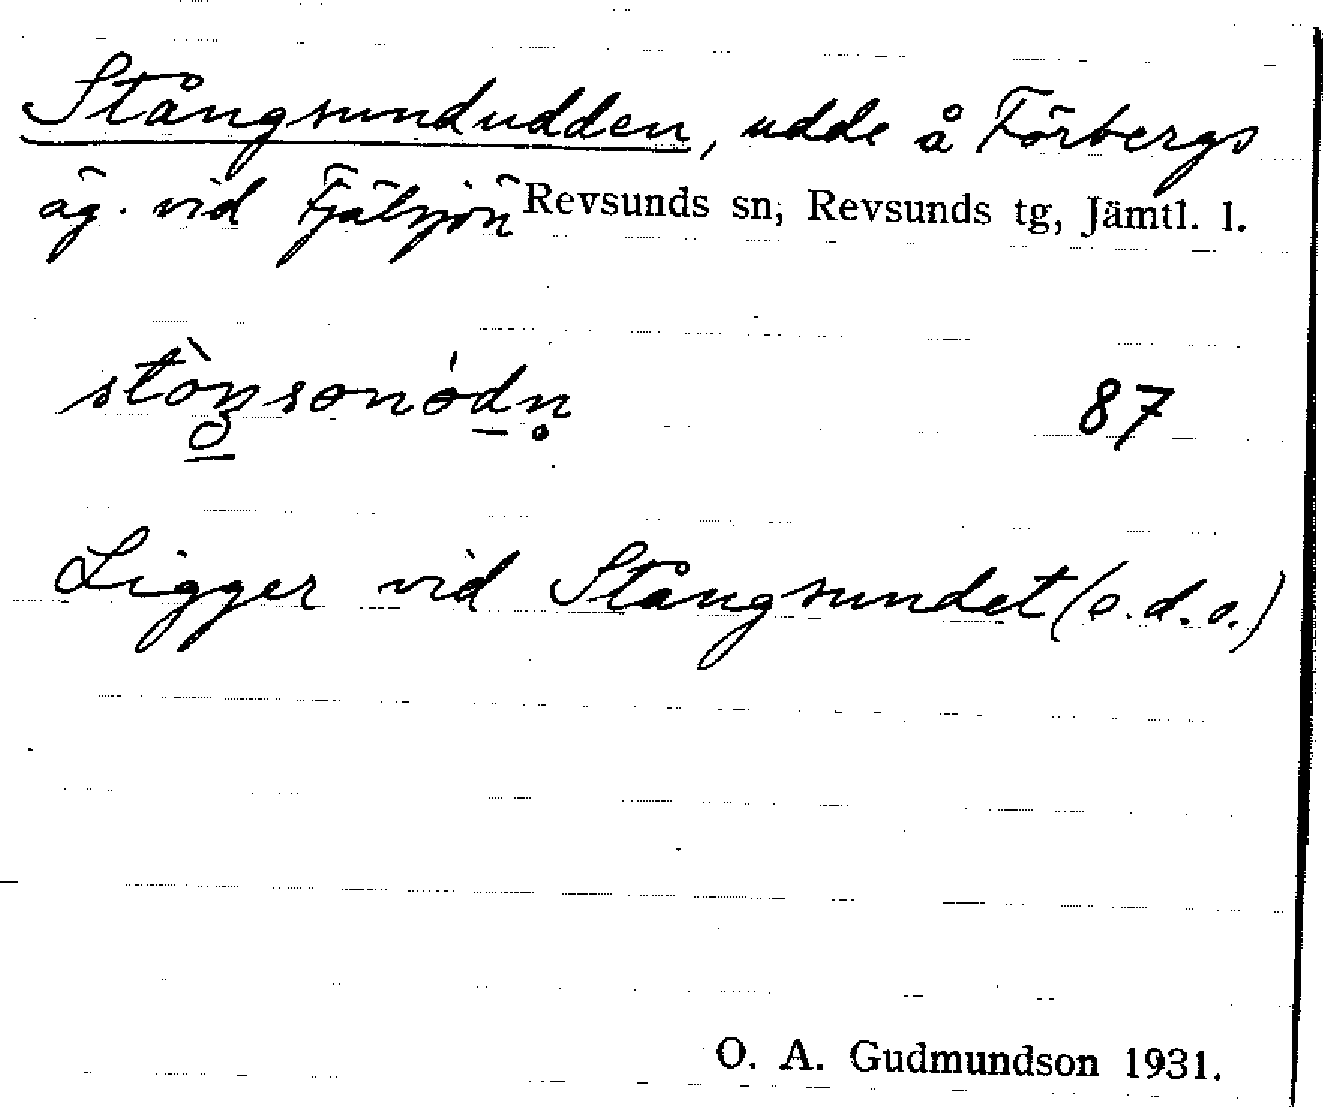 Stångsundudden, udde å Förbergs
äg. vid Fjälsjön Revsunds sn, Revsunds tg, Jämtl. l.
87
Ligger vid Stångsundet (o.d.o.)
O. A. Gudmundson 1931.